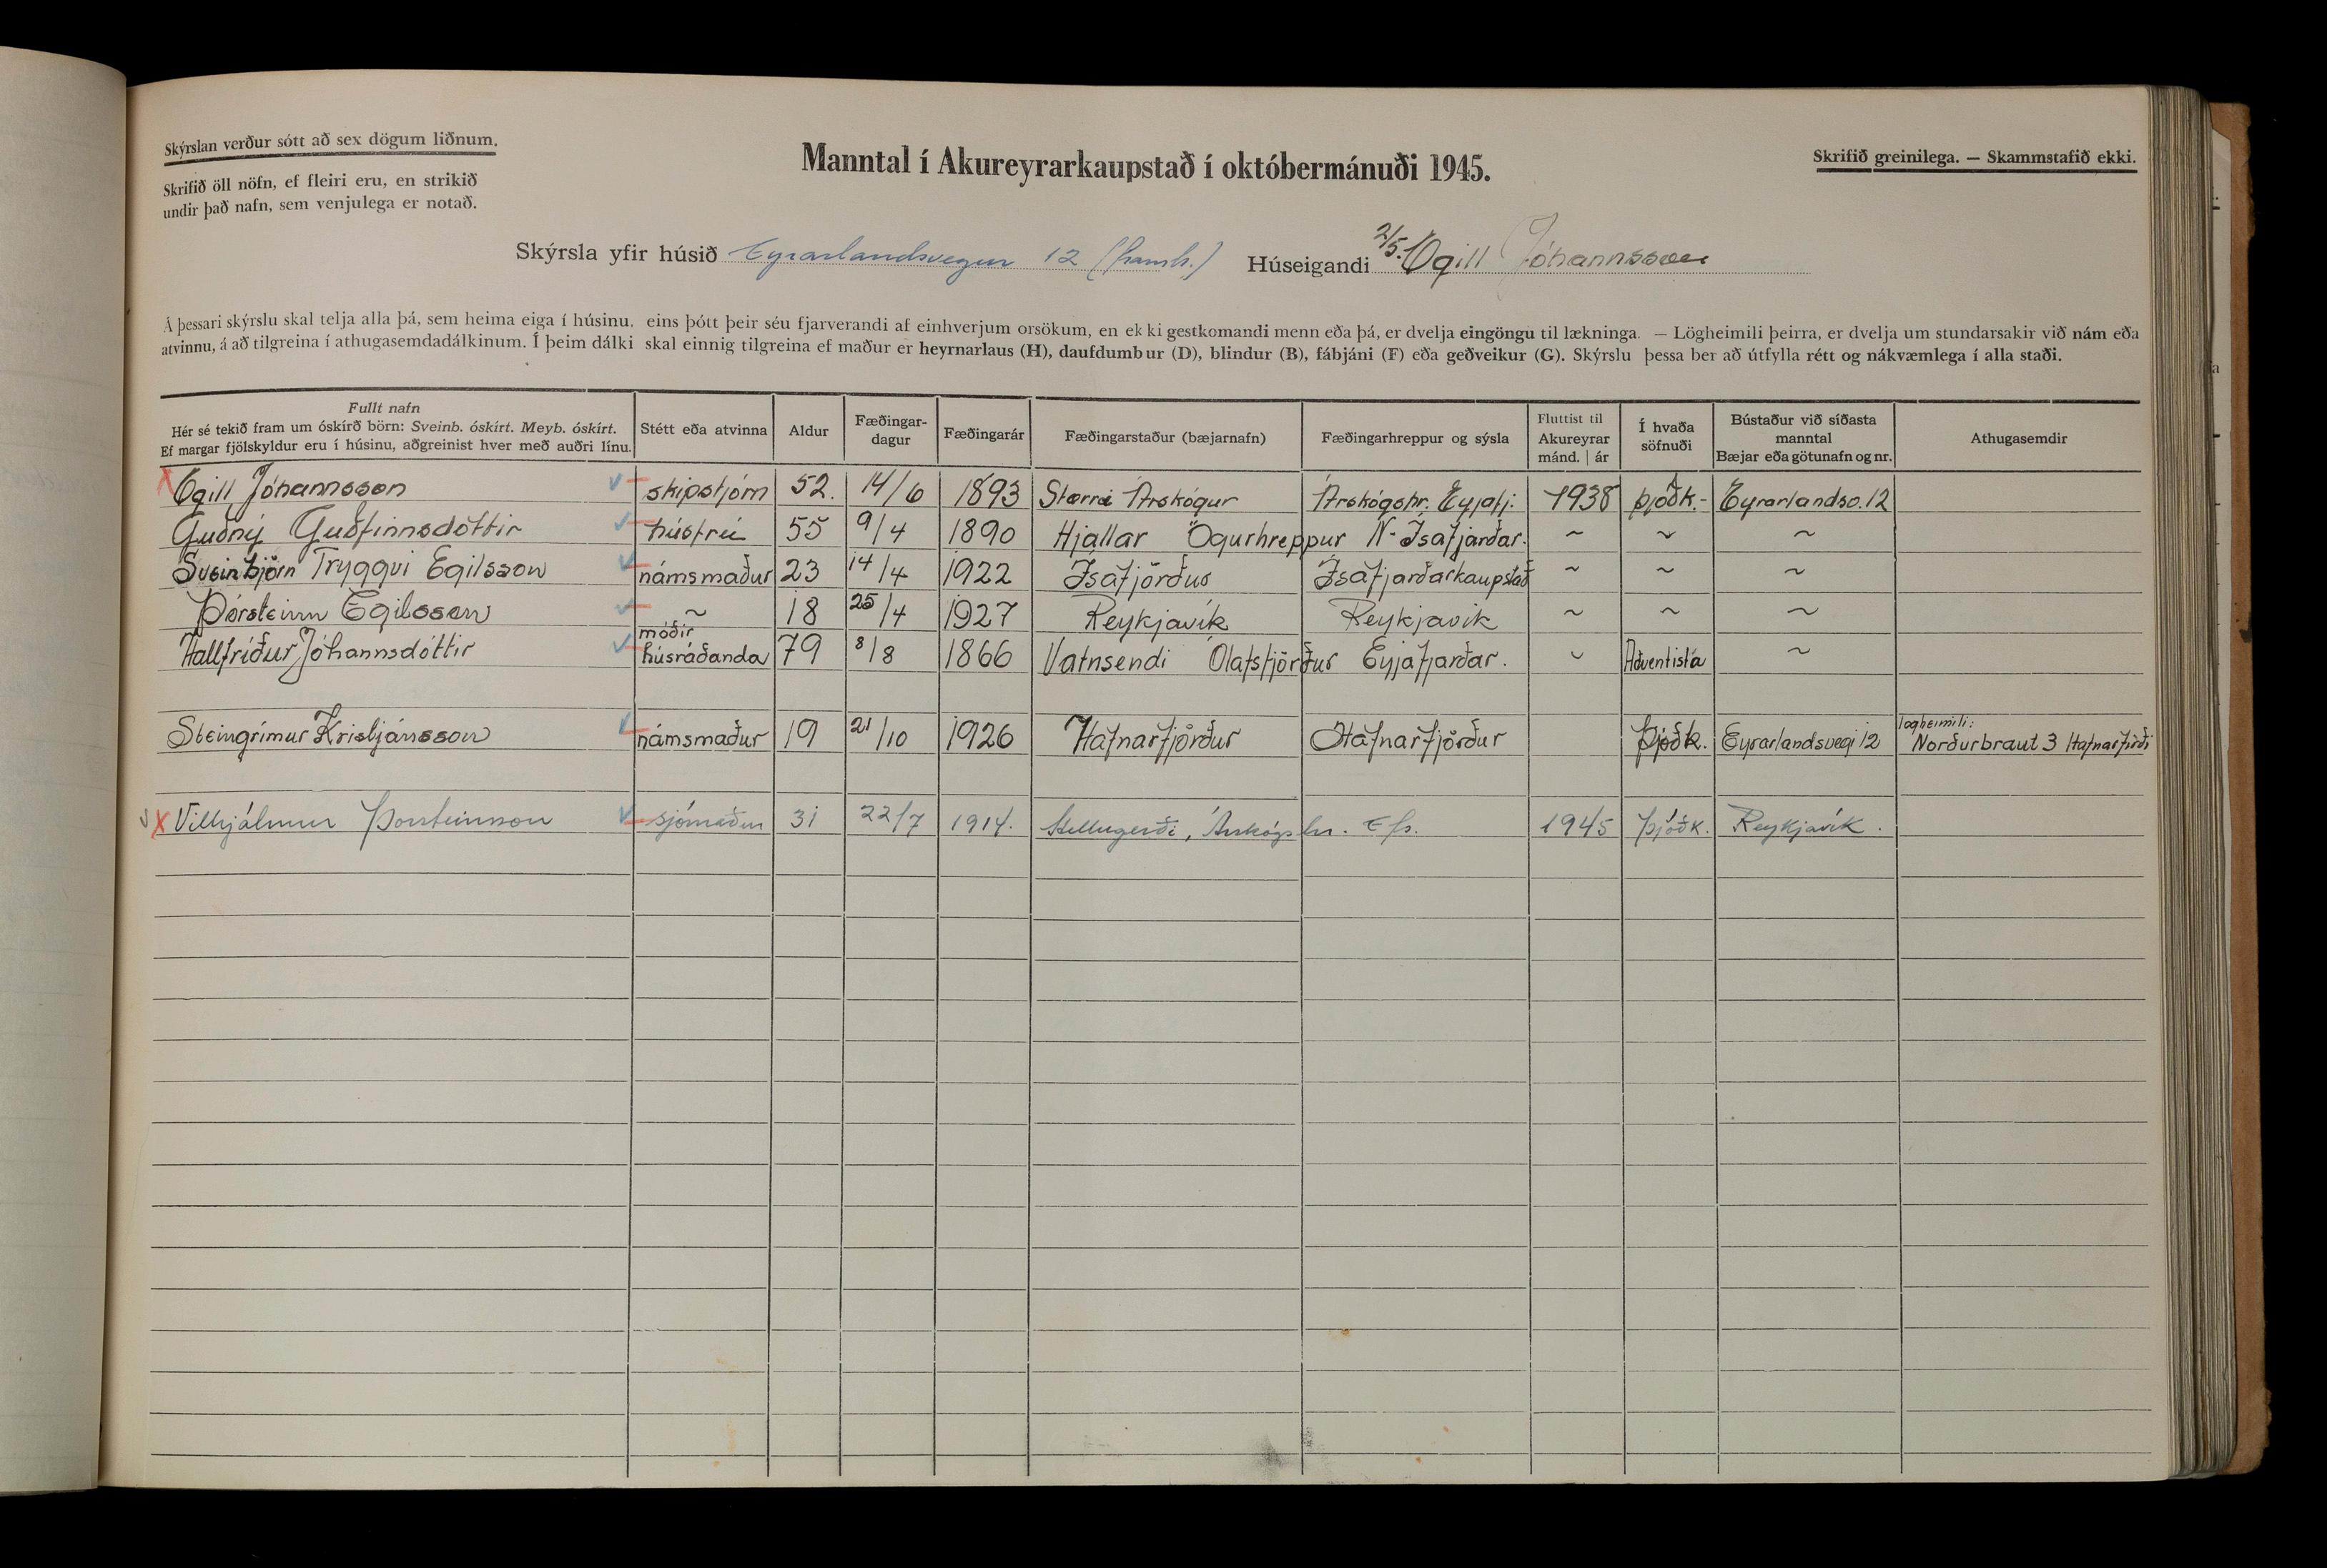 Skýrslan verður sótt að sex dögum liðnum.
Skrifið öll nöfn, ef fleiri eru, en strikið
undir það nafn, sem venjulega er notað.
Manntal í Akureyrarkaupstað í októbermánuði 1945.
Skrifið greinilega. — Skammstafið ekki.
Skýrsla yfir húsið Eyrarlandsvegur 12 (framh.) Húseigandi 2/5. Egill Jóhannsson
Á þessari skýrslu skal telja alla þá, sem heima eiga í húsinu, eins þótt þeir séu fjarverandi af einhverjum orsökum, en ekki gestkomandi menn eða þá, er dvelja eingöngu til lækninga. — Lögheimili þeirra, er dvelja um stundarsakir við nám eða
atvinnu, á að tilgreina í athugasemdadálkinum. Í þeim dálki skal einnig tilgreina ef maður er heyrnarlaus (H), daufdumbur (D), blindur (B), fábjáni (F) eða geðveikur (G). Skýrslu þessa ber að útfylla rétt og nákvæmlega í alla staði.
Fullt nafn
Hér sé tekið fram um óskírð börn: Sveinb. óskírt. Meyb. óskírt.
Ef margar fjölskyldur eru í húsinu, aðgreinist hver með auðri línu.
Stétt eða atvinna
Aldur
Fæðingar-
dagur
Fæðingarár
Fæðingarstaður (bæjarnafn)
Fæðingarhreppur og sýsla
Fluttist til
Akureyrar
mánd. | ár
Í hvaða
söfnuði
Bústaður við síðasta
manntal
Bæjar eða götunafn og nr.
Athugasemdir
Egill Jóhannsson skipstjórn 52. 14/6 1893 Stærri Árskógur Árskógshr. Eyjafj. 1938 þjóðk.- Eyrarlandsv. 12
Guðný Guðfinnsdóttir húsfrú 55 9/4 1890 Hjallar Ögurhreppur N-Ísafjarðar. ~ ~ ~
Sveinbjörn Tryggvi Egilsson námsmaður 23 14/4 1922 Ísafjörður Ísafjarðarkaupstað ~ ~ ~
Þórsteinn Egilsson ~ 18 25/4 1927 Reykjavík Reykjavík ~ ~ ~
Hallfríður Jóhannsdóttir móðir húsráðanda 79 8/8 1866 Vatnsendi Ólafsfjörður Eyjafjarðar. ~ Aðventista ~
Steingrímur Kristjánsson námsmaður 19 21/10 1926 Hafnarfjörður Hafnarfjörður þjóðk. Eyrarlandsvegi 12 lögheimili: Norðurbraut 3 Hafnarfirði
Vilhjálmur Þorsteinsson sjómaður 31 22/7 1914. Árskógshr. Ef. 1945 þjóðk. Reykjavík.